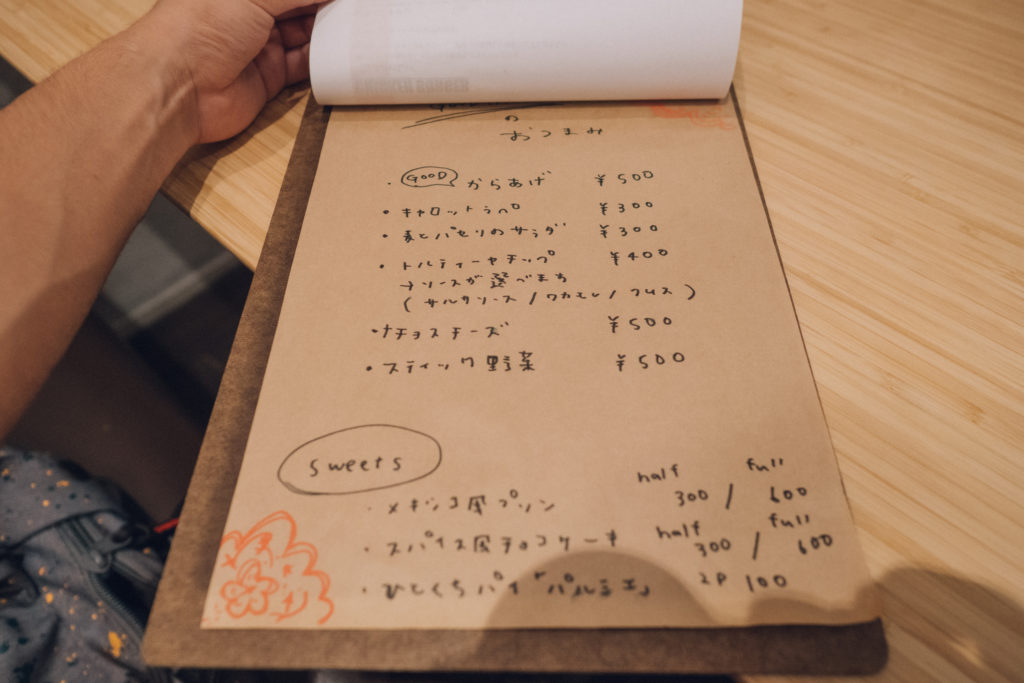 の
おつまみ
・GOOD からあげ ¥500
・キャロットラペ ¥300
・麦とパセリのサラダ ¥300
・トルティーヤチップ ¥400
→ソースが選べます
(サルサソース/ワカモレ/フムス)
・ナチョスチーズ ¥500
・スティック野菜 ¥500
sweets
half full
・メキシコ風プリン 300 / 600
half full
・スパイス風チョコケーキ 300 / 600
・ひとくちパイ「パルミエ」 2P 100